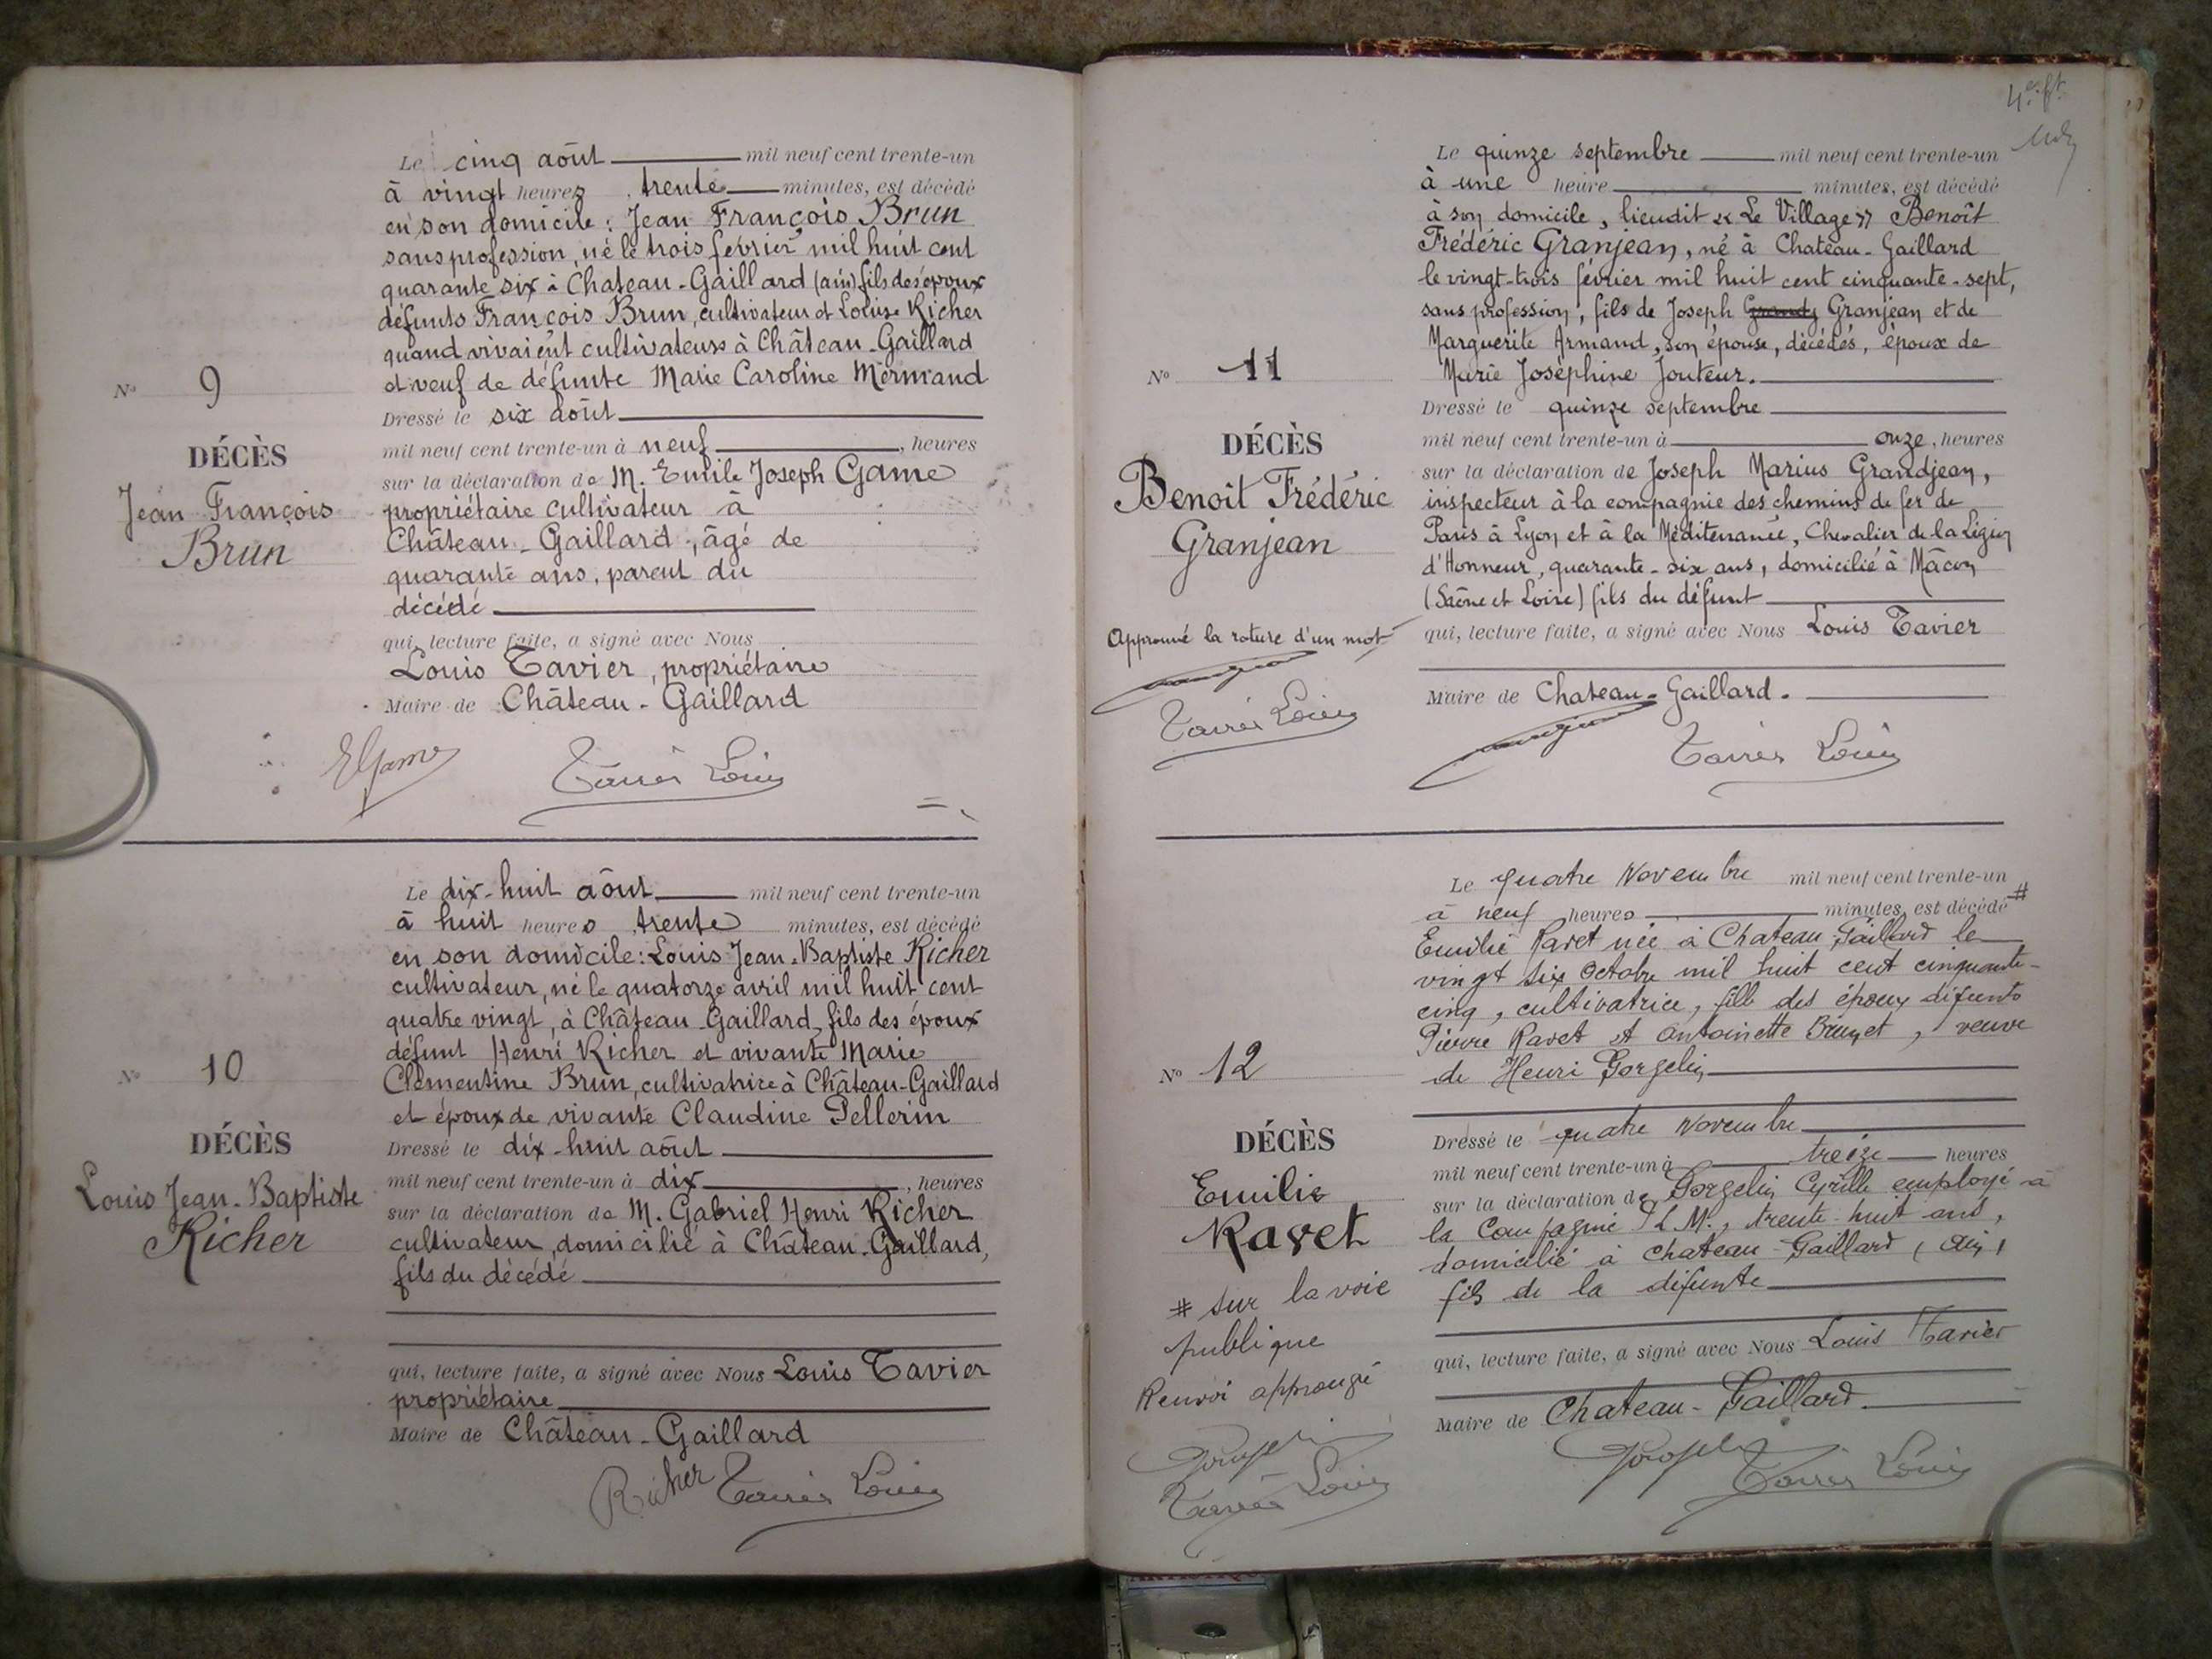 Le cinq août mil neuf cent trente-un
à vingt heures trente minutes, est décédé
en son domicile : Jean François Brun
sans profession, né le trois février mil huit cent
quarante six à Chateau-Gaillard (ain) fils des époux
défunts François Brun, cultivateur et Louise Richer
quand vivaient cultivateurs à Château-Gaillard
et veuf de défunte Marie Caroline Mermand
Dressé le six août
mil neuf cent trente-un à neuf, heures
sur la déclaration de M. Emile Joseph Game
propriétaire cultivateur à
Château-Gaillard, âgé de
quarante ans, parent du
décédé
qui, lecture faite, a signé avec Nous
Louis Tavier, propriétaire
Maire de Château-Gaillard
N° 9
DÉCÈS
Jean François
Brun
EGame
Tavier Louis
Le dix-huit août mil neuf cent trente-un
à huit heures trente minutes, est décédé
en son domicile: Louis Jean-Baptiste Richer
cultivateur, né le quatorze avril mil huit cent
quatre vingt, à Château-Gaillard, fils des époux
défunt Henri Richer et vivante Marie
Clémentine Brun, cultivatrice à Château-Gaillard
et époux de vivante Claudine Pellerin
Dressé le dix-huit août
mil neuf cent trente-un à dix, heures
sur la déclaration de M. Gabriel Henri Richer
cultivateur, domicilié à Château-Gaillard,
fils du décédé
qui, lecture faite, a signé avec Nous Louis Tavier
propriétaire
Maire de Château-Gaillard
N° 10
DÉCÈS
Louis Jean-Baptiste
Richer
Richer Tavier Louis
Le quinze septembre mil neuf cent trente-un
à une heure minutes, est décédé
à son domicile, lieudit « Le Village » Benoît
Frédéric Granjean, né à Chateau-Gaillard
le vingt-trois février mil huit cent cinquante-sept,
sans profession, fils de Joseph Granjean et de
Marguerite Armand, son épouse, décédés, époux de
Marie Joséphine Jouteur.
Dressé le quinze septembre
mil neuf cent trente-un à onze, heures
sur la déclaration de Joseph Marius Grandjean,
inspecteur à la compagnie des chemins de fer de
Paris à Lyon et à la Méditerranée, Chevalier de la Légion
d'Honneur, quarante-six ans, domicilié à Mâcon
(Saône et Loire) fils du défunt
qui, lecture faite, a signé avec Nous Louis Tavier
Maire de Chateau-Gaillard.
N° 11
DÉCÈS
Benoît Frédéric
Granjean
Approuvé la rature d'un mot
Tavier Louis
Tavier Louis
Le quatre Novembre mil neuf cent trente-un
à neuf heures minutes, est décédé #
Emilie Ravet née à Chateau-Gaillard le
vingt six Octobre mil huit cent cinquante-
cinq, cultivatrice, fille des époux défunts
Pierre Ravet et Antoinette Brunet, veuve
de Henri Gorgelin
Dressé le quatre Novembre
mil neuf cent trente-un à treize heures
sur la déclaration de Gorgelin Cyrille employé à
la Compagnie P L M., trente-huit ans,
domicilié à Chateau-Gaillard (Ain)
fils de la défunte
qui, lecture faite, a signé avec Nous Louis Tavier
Maire de Chateau-Gaillard.
N° 12
DÉCÈS
Emilie
Ravet
# sur la voie
publique
Renvoi approuvé
Gorgelin
Tavier Louis
Gorgelin
Tavier Louis